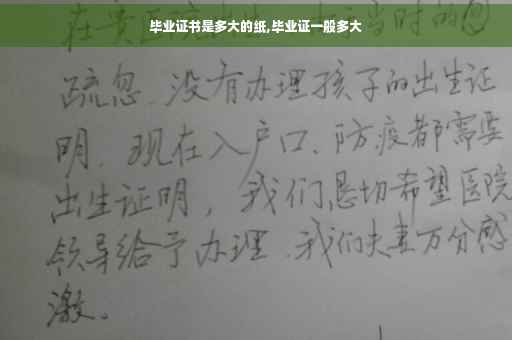 毕业证书是多大的纸,毕业证一般多大
当时的
疏忽、没有办理孩子的出生证
明、现在入户口、防疫都需要
出生证明，我们恳切希望医院
领导给予办理、我们夫妻万分感
激。